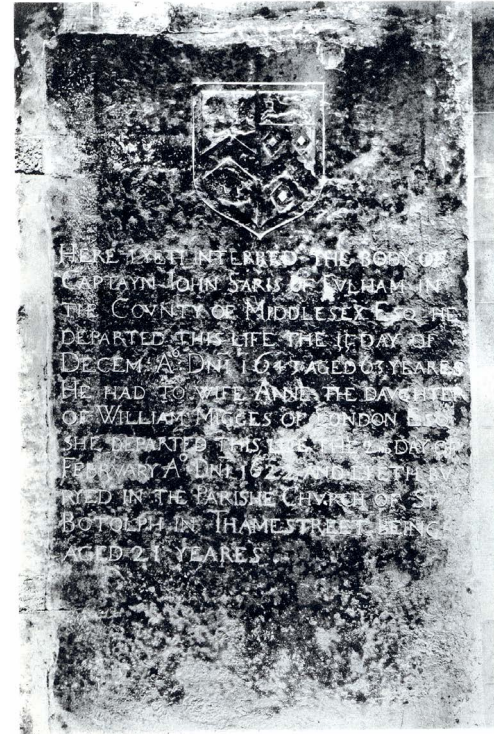 HERE LYETH INTERRED THE BODY OF
CAPTAYN JOHN SARIS OF FVLHAM IN
THE COVNTY OF MIDDLESEX ESQ HE
DEPARTED THIS LIFE THE DAY OF
DECEM: Aº DNI AGED YEARES
HE HAD TO WIFE ANNE THE DAVGHTER
OF WILLIAM MIGGES OF LONDON ESQ
SHE DEPARTED THIS LIFE THE DAY OF
FEBRVARY Aº DNI 1622 AND LYETH BV
RYED IN THE PARISHE CHVRCH OF St
BOTOLPH IN THAMESTREET BEING
AGED 21 YEARES